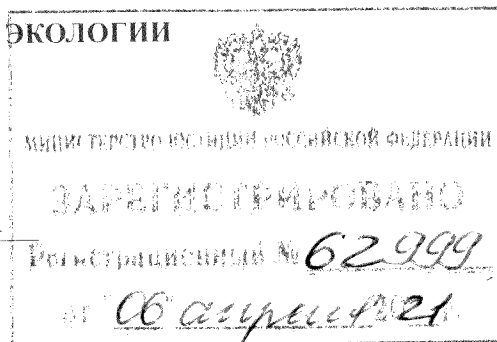 ЭКОЛОГИИ
МИНИСТЕРСТВО ЮСТИЦИИ РОССИЙСКОЙ ФЕДЕРАЦИИ
ЗАРЕГИСТРИРОВАНО
Регистрационный № 62999
от "06" апреля 2021 г.